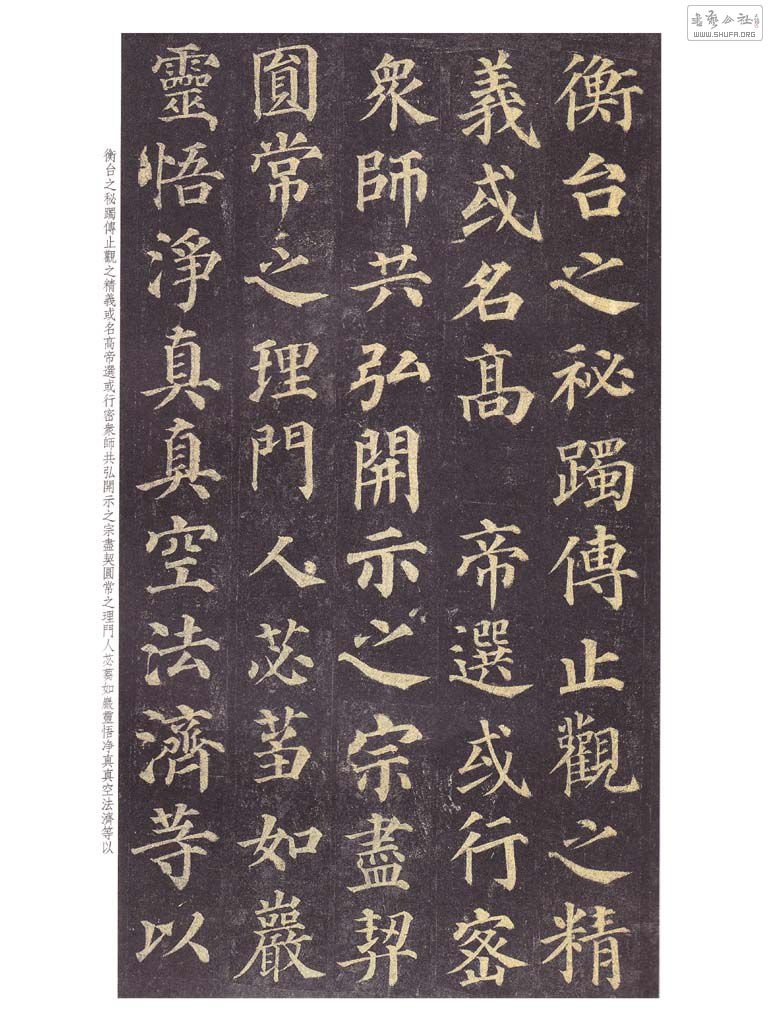 衡台之秘躅傳止觀之精
義或名高 帝選或行密
衆師共弘開示之宗盡契
圓常之理門人苾蒭如巖
靈悟淨真真空法濟等以
衡台之秘躅傳止觀之精義或名高帝選或行密衆師共弘開示之宗盡契圓常之理門人苾蒭如巖靈悟净真真空法濟等以
WWW.SHUFA.ORG